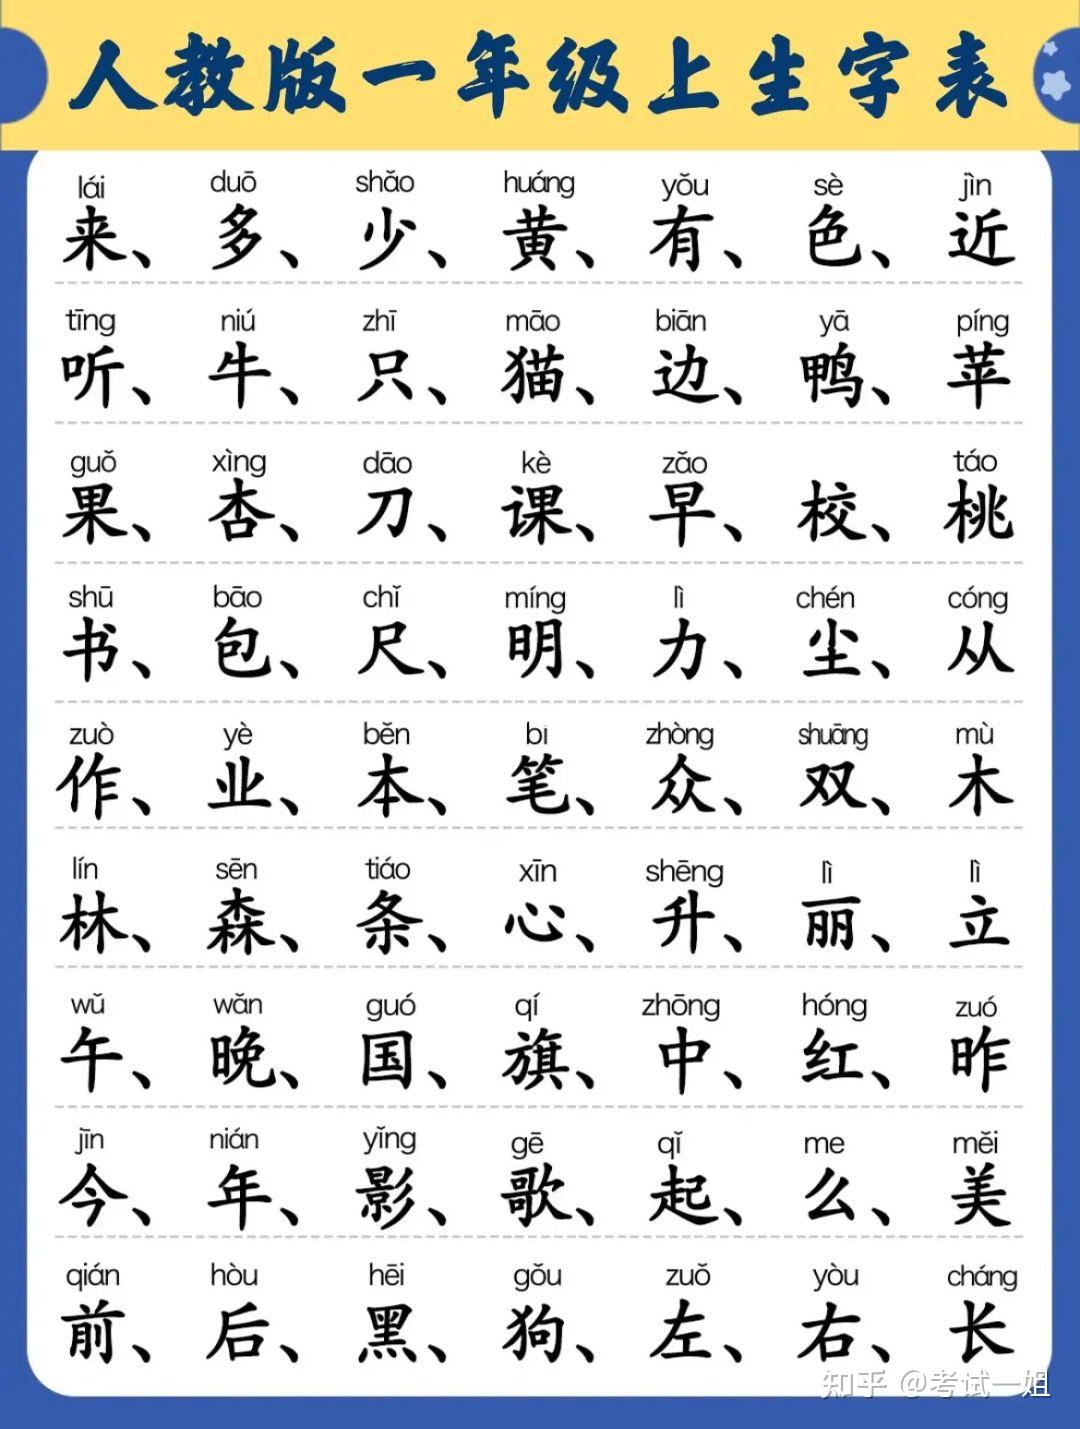 人教版一年级上生字表
lái duō shǎo huáng yǒu sè jìn
来、 多、 少、 黄、 有、 色、 近
tīng niú zhī māo biān yā píng
听、 牛、 只、 猫、 边、 鸭、 苹
guǒ xìng dāo kè zǎo táo
果、 杏、 刀、 课、 早、 校、 桃
shū bāo chǐ míng lì chén cóng
书、 包、 尺、 明、 力、 尘、 从
zuò yè běn bı zhòng shuāng mù
作、 业、 本、 笔、 众、 双、 木
lín sēn tiáo xīn shēng lì lì
林、 森、 条、 心、 升、 丽、 立
wǔ wǎn guó qí zhōng hóng zuó
午、 晚、 国、 旗、 中、 红、 昨
jīn nián yǐng gē qǐ me měi
今、 年、 影、 歌、 起、 么、 美
qián hòu hēi gǒu zuǒ yòu cháng
前、 后、 黑、 狗、 左、 右、 长
知乎 @考试一姐